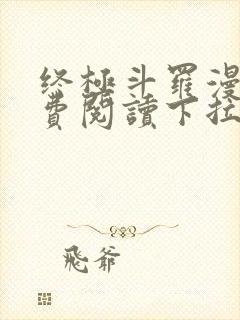 终極斗羅漫
費閱讀下拉
飛爺